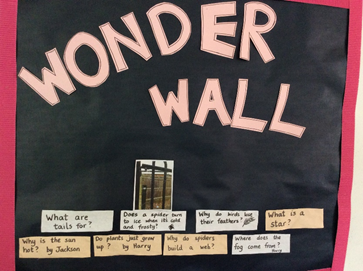 WONDER
WALL
What are
tails for?
Does a spider turn
to ice when its cold
and frosty?
Why do birds
their feathers?
What is a
star?
Why is the sun
hot? by Jackson
Do plants just grow
up? by Harry
Why do spiders
build a web?
Where does the
fog come from?